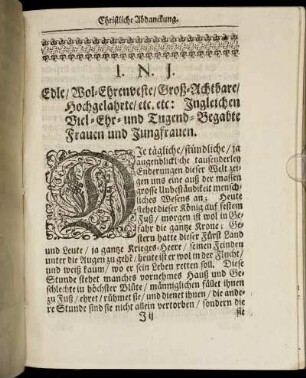 Christliche Abdanckung.
I. N. J.
Edle/ Wol-Ehrenveste/ Groß-Achtbare/
Hochgelahrte/ etc. etc: Ingleichen
Viel-Ehr- und Tugend-Begabte
Frauen und Jungfrauen.
DIe tägliche/ stündliche/ ja
augenblickliche tausenderley
Enderungen dieser Welt zei-
gen uns eine auß der massen
grosse Unbeständigkeit mensch-
liches Wesens an; Heute
stehet dieser König auf festem
Fuß/ morgen ist wol in Ge-
fahr die gantze Krone; Ge-
stern hatte dieser Fürst Land
und Leute/ ja gantze Krieges-Heere/ seinen Feinden
unter die Augen zu gehn/ heute ist er wol in der Flucht/
und weiß kaum/ wo er sein Leben retten soll. Diese
Stunde stehet manches vornehmes Hauß und Ge-
schlechte in höchster Blüte/ männiglichen fället ihnen
zu Fuß/ ehret/ rühmet sie/ und dienet ihnen/ die ande-
re Stunde sind sie nicht allein verdorben/ sondern die
Ij ij
sie